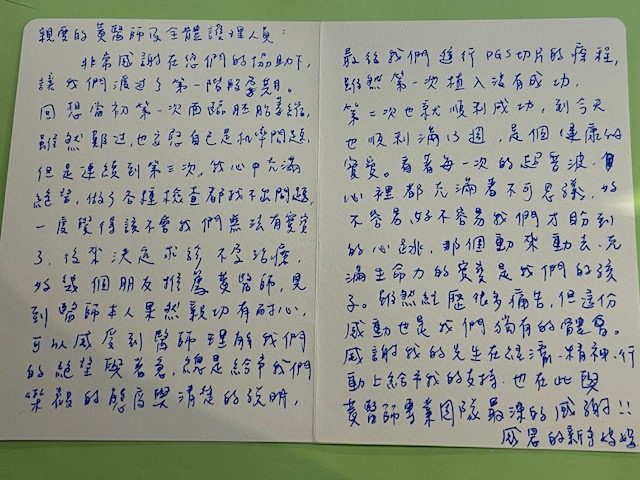 親愛的黃醫師及全體護理人員：
非常感謝在您們的協助下，
讓我們渡過了第一階段孕期。
回想當初第一次面臨胚胎萎縮，
雖然難過，也安慰自己是機率問題，
但是連續到第三次，我心中充滿
絕望，做了各種檢查都找不出問題，
一度覺得該不會我們無法有寶寶
了，後來決定求診不孕治療，
好幾個朋友推薦黃醫師，見
到醫師本人果然親切有耐心，
可以感受到醫師理解我們
的絕望與著急，總是給予我們
樂觀的態度與清楚的說明，
最後我們進行PGS切片的療程，
雖然第一次植入沒有成功，
第二次也就順利成功，到今天
也順利滿13週，是個健康的
寶寶。看著每一次的超音波，
心裡都充滿著不可思議，好
不容易，好不容易我們才盼到
的心跳，那個動來動去、充
滿生命力的寶寶是我們的孩
子。雖然經歷很多痛苦，但這份
感動也是我們獨有的體會。
感謝我的先生在經濟、精神、行
動上給予我的支持，也在此與
黃醫師專業團隊最深的感謝!!
感恩的新手媽媽